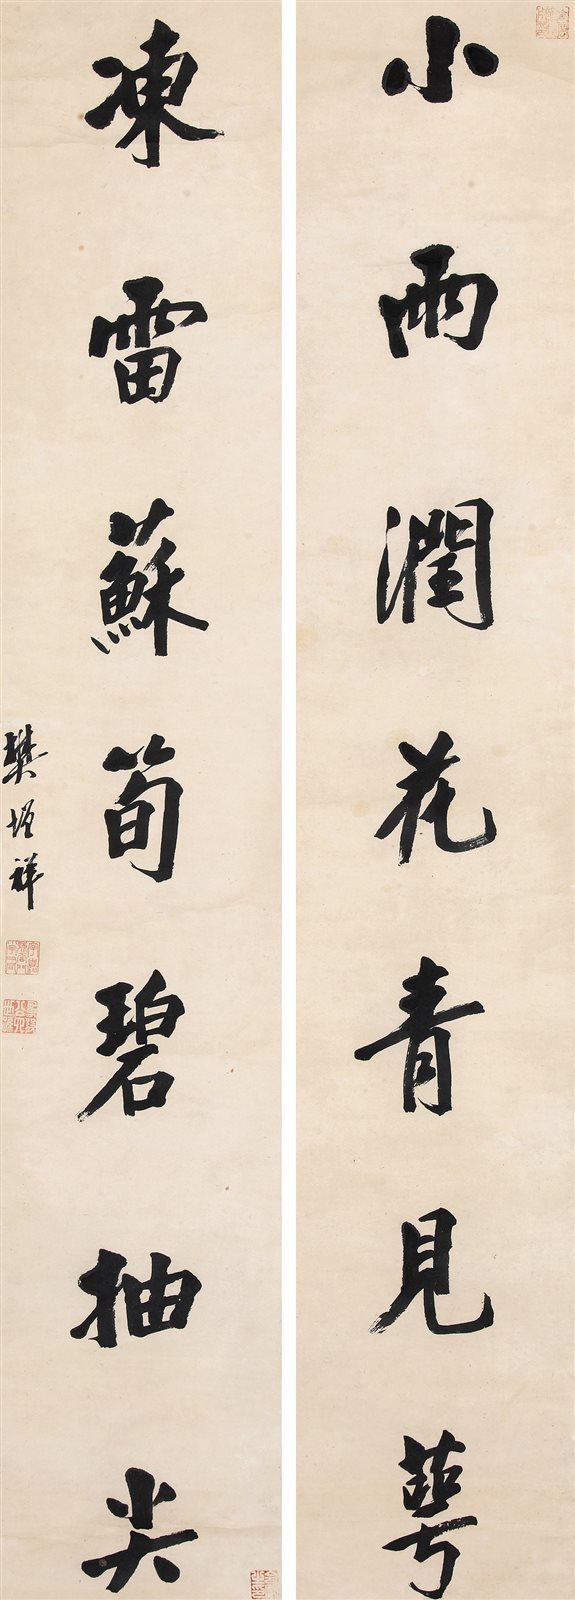 小雨潤花青見萼
凍雷蘇筍碧抽尖
樊增祥